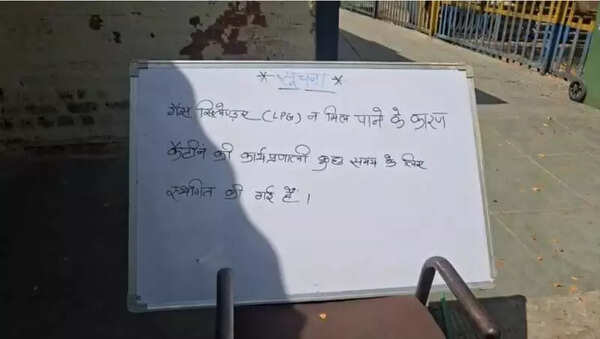 * सूचना *
गैस सिलेण्डर (LPG) न मिल पाने के कारण
कैंटीन की कार्यप्रणाली कुछ समय के लिए
स्थगित की गई है।